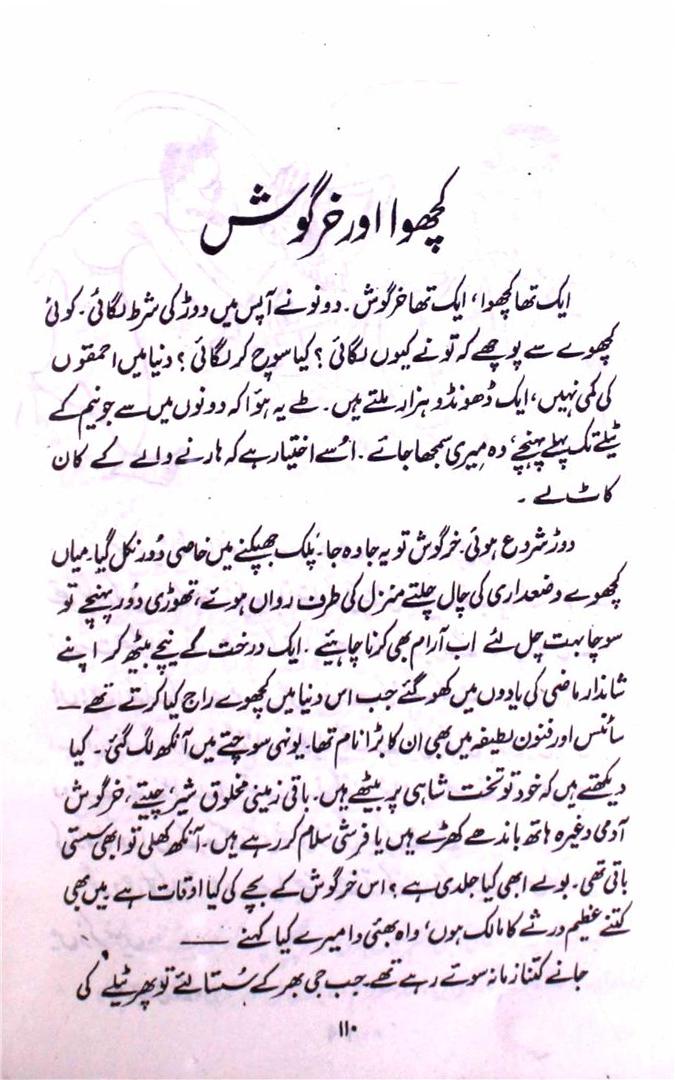 کچھوا اور خرگوش
ایک تھا کچھوا، ایک تھا خرگوش۔ دونو نے آپس میں دوڑ کی شرط لگائی۔ کوئی
کچھوے سے پوچھے کہ تو نے کیوں لگائی؟ کیا سوچ کر لگائی؟ دنیا میں احمقوں
کی کمی نہیں، ایک ڈھونڈو ہزار ملتے ہیں۔ طے یہ ہوا کہ دونوں میں سے جو نیم کے
ٹیلے تک پہلے پہنچے، وہ میری سمجھا جائے۔ اُسے اختیار ہے کہ ہارنے والے کے کان
کاٹ لے۔
دوڑ شروع ہوئی۔ خرگوش تو یہ جا وہ جا۔ پلک جھپکنے میں خاصی دُور نکل گیا۔ میاں
کچھوے وضعداری کی چال چلتے منزل کی طرف رواں ہوئے، تھوڑی دُور پہنچے تو
سوچا بہت چل لئے اب آرام بھی کرنا چاہئیے۔ ایک درخت کے نیچے بیٹھ کر اپنے
شاندار ماضی کی یادوں میں کھو گئے جب اس دنیا میں کچھوے راج کیا کرتے تھے —
سائنس اور فنون لطیفہ میں بھی ان کا بڑا نام تھا۔ یونہی سوچتے میں آنکھ لگ گئی۔ کیا
دیکھتے ہیں کہ خود تو تخت شاہی پر بیٹھے ہیں۔ باقی زمینی مخلوق شیر، چیتے، خرگوش
آدمی وغیرہ ہاتھ باندھے کھڑے ہیں یا فرشی سلام کر رہے ہیں۔ آنکھ کھلی تو ابھی سستی
باقی تھی۔ بولے ابھی کیا جلدی ہے؟ اس خرگوش کے بچے کی کیا اوقات ہے۔ میں بھی
کتنے عظیم ورثے کا مالک ہوں، واہ بھئی وا میرے کیا کہنے —
جانے کتنا زمانہ سوتے رہے تھے۔ جب جی بھر کے سُستا لئے تو پھر ٹیلے کی
۱۱۰